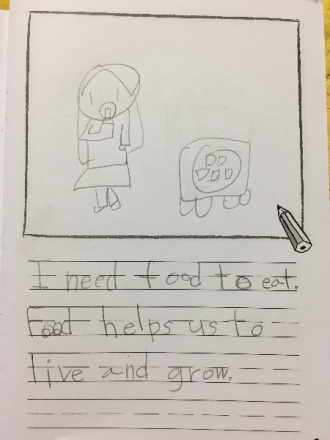 I need food to eat.
Food helps us to
live and grow.